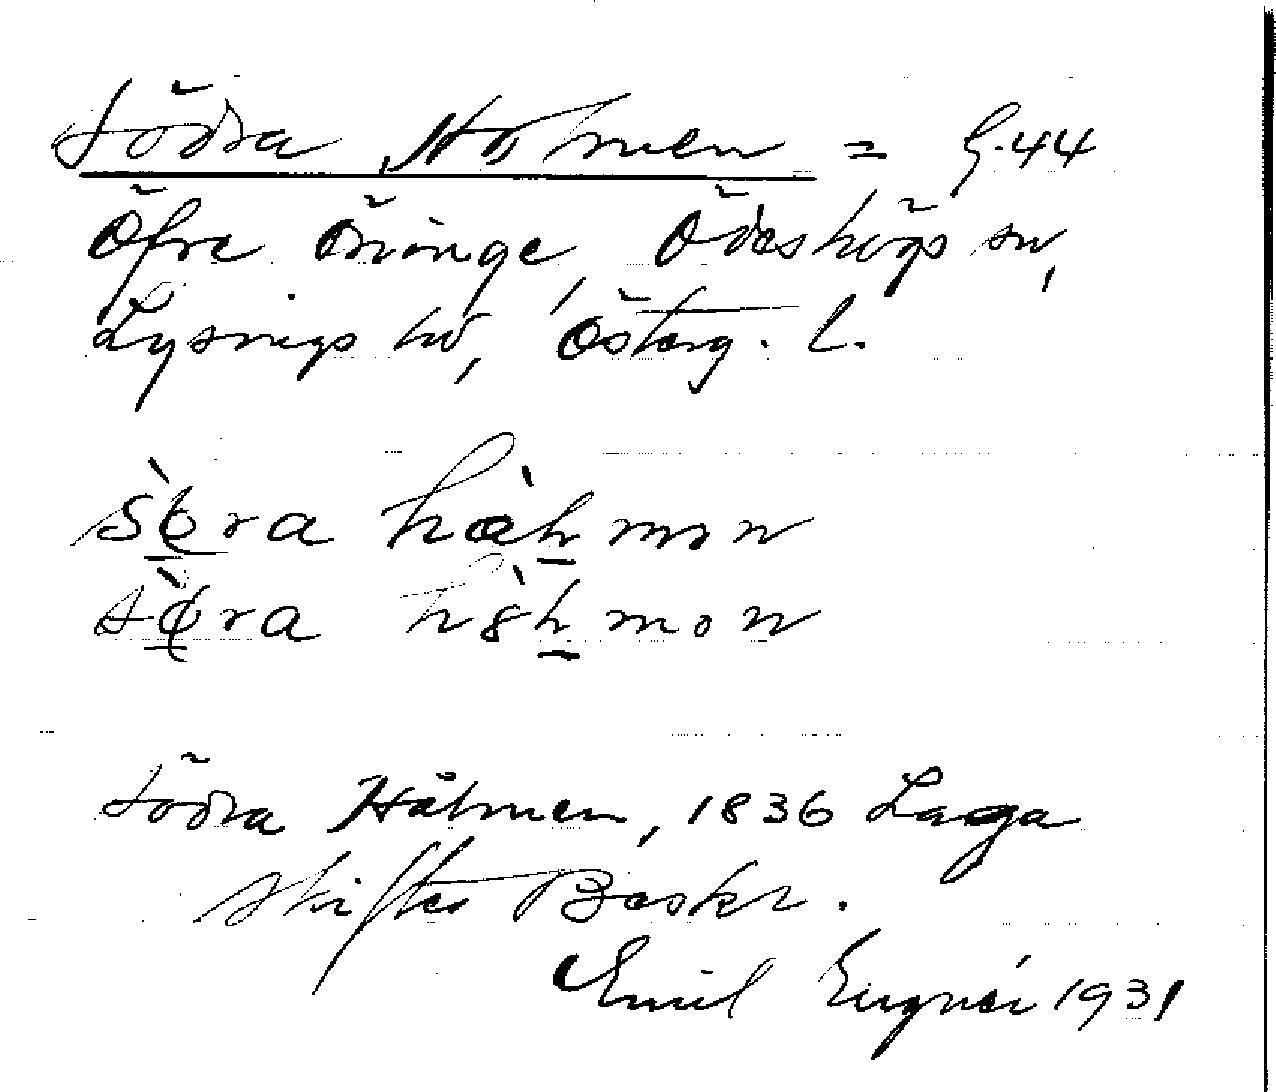 Södra Holmen = G.44
Öfre Öninge, Ödeshögs sn,
Lysings hd, Österg. l.
sèra hàhmon
sèra hòhmon
Södra Håhmen, 1836 Laga
skiftes Beskr.
Emil 1931